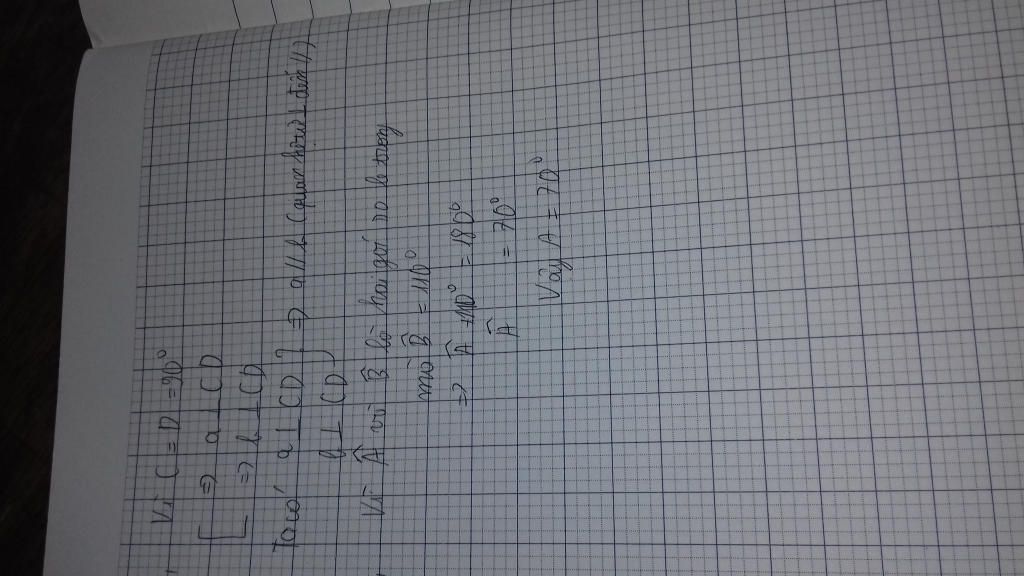 Vì C = D = 90°
[ ⇒ a ⊥ CD
⇒ b ⊥ CD
Ta có a ⊥ CD } ⇒ a // b (quan hệ từ ⊥ đến //)
b ⊥ CD
Vì Â và B̂ là hai góc so le trong
mà B̂ = 110°
⇒ Â + 110° = 180°
Â = 70°
Vậy A = 70°